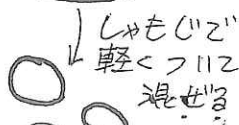 しゃもじで
軽くついて
混ぜる